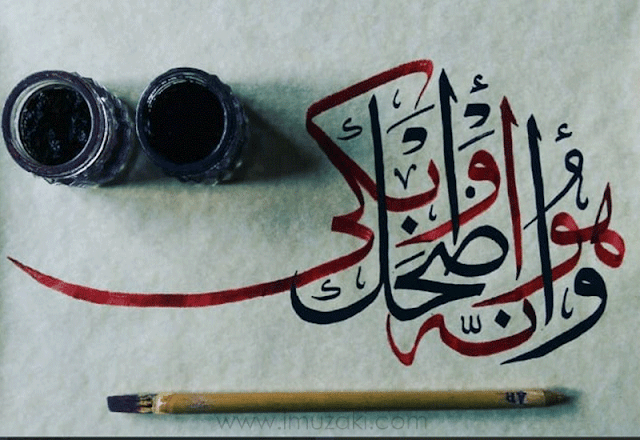 وَأَنَّهُ هُوَ أَضْحَكَ وَأَبْكَى
AR
www.imuzaki.com